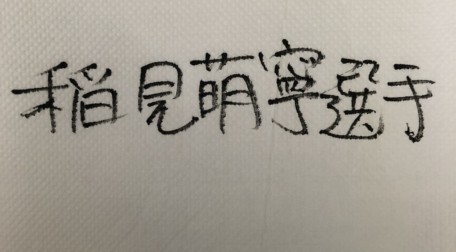 稲見萌寧選手